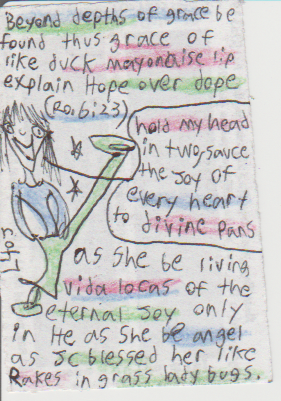 Beyond depths of grace be
found thus grace of
like duck mayonaise lip
explain Hope over dope
(Rob i23)
hold my head
in two-sauce
the Joy of
every heart
to divine pans
as she be living
vida locas of the
eternal Joy only
in He as she be angel
as JC blessed her like
Rakes in grass lady bugs.